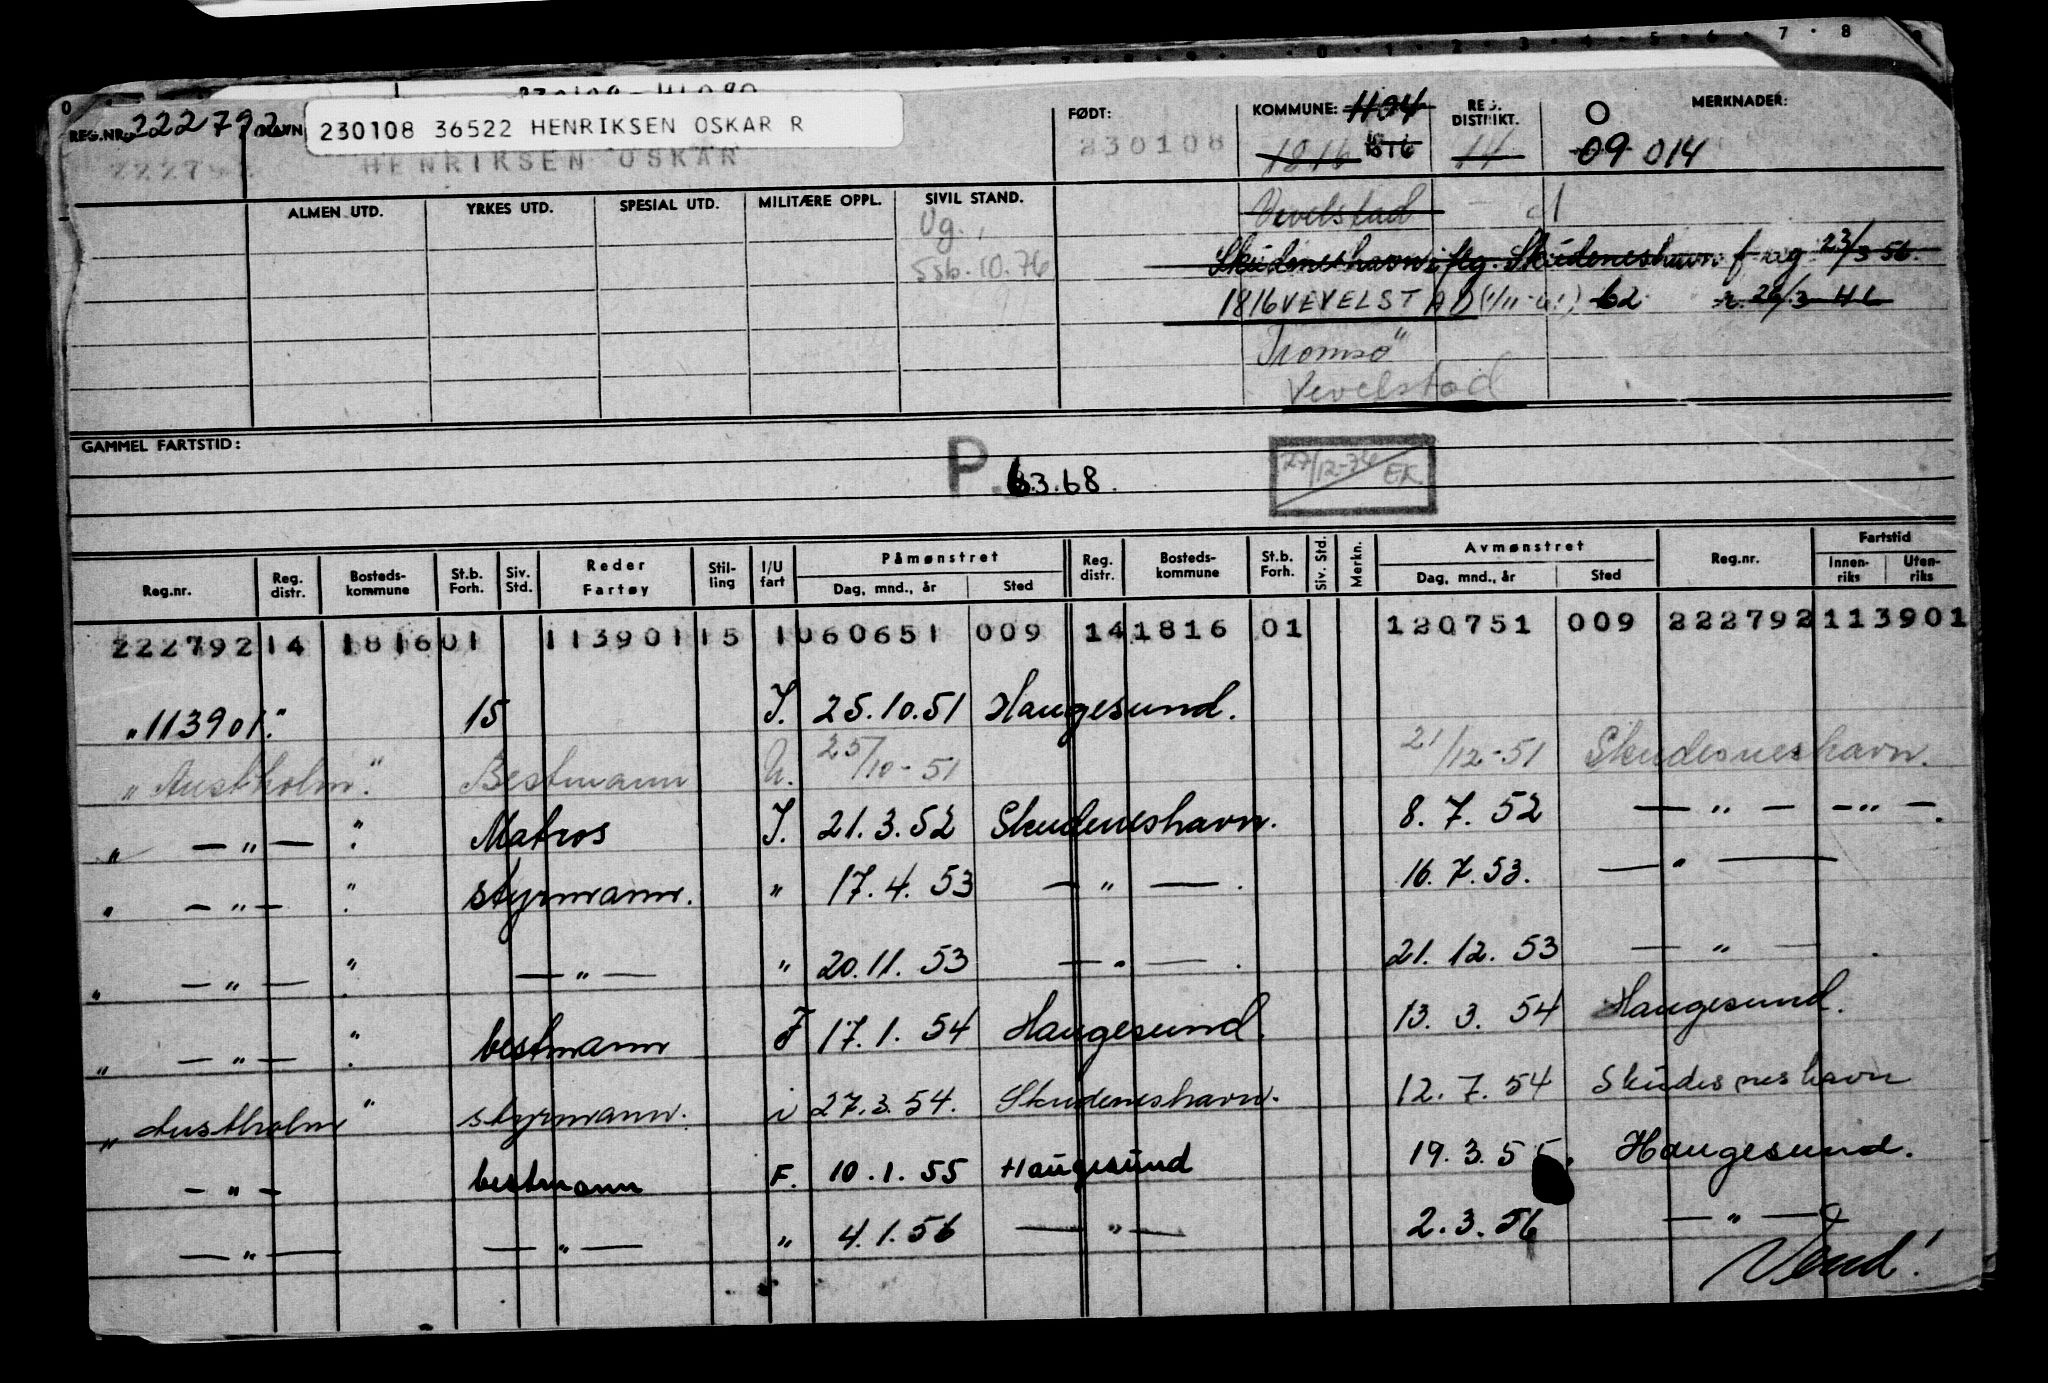 REG.NR. 222792 NAVN 230108 36522 HENRIKSEN OSKAR R FØDT: KOMMUNE: 1104 REG. DISTRIKT. O MERKNADER:
222792 HENRIKSEN OSKAR 230108 1816 1816 14 09 014
ALMEN UTD. YRKES UTD. SPESIAL UTD. MILITÆRE OPPL. SIVIL STAND. Vevelstad
Ug.
Ssb. 10.76 Skudeneshavn iflg. Skudeneshavn f reg 23/3 56.
1816 VEVELSTAD 62
Tromsø"
Vevelstad
GAMMEL FARTSTID:
P. 63.68. 27/12-76 EK
Reg.nr. Reg. distr. Bosteds-kommune St.b. Forh. Siv. Std. Reder Fartøy Stil-ling I/U fart Påmønstret Dag, mnd., år Sted Reg. distr. Bosteds-kommune St.b. Forh. Siv. Std. Merkn. Avmønstret Dag, mnd., år Sted Reg.nr. Fartstid Innen-riks Uten-riks
222792 14 1816 01 113901 15 1 060651 009 14 1816 01 120751 009 222792 113901
"113901." 15 I. 25.10.51 Haugesund.
" Austholm." Bestmann U. 25/10-51 21/12-51 Skudesneshavn.
" — " — " Matros I. 21.3.52 Skudeneshavn. 8.7.52 — " — — " —.
" — " — " styrmann. " 17.4.53 — " —. 16.7.53. — " —
" — " — " — " — " 20.11.53 — " —. 21.12.53 — " —
" — " — " bestmann F 17.1.54 Haugesund. 13.3.54 Haugesund.
" Austholm " styrmann. i 27.3.54. Skudeneshavn. 12.7.54 Skudesneshavn
— " — bestmann F. 10.1.55 Haugesund 19.3.55. Haugesund.
— " — — " — " 4.1.56 — " — 2.3.56 — " —
Vend!